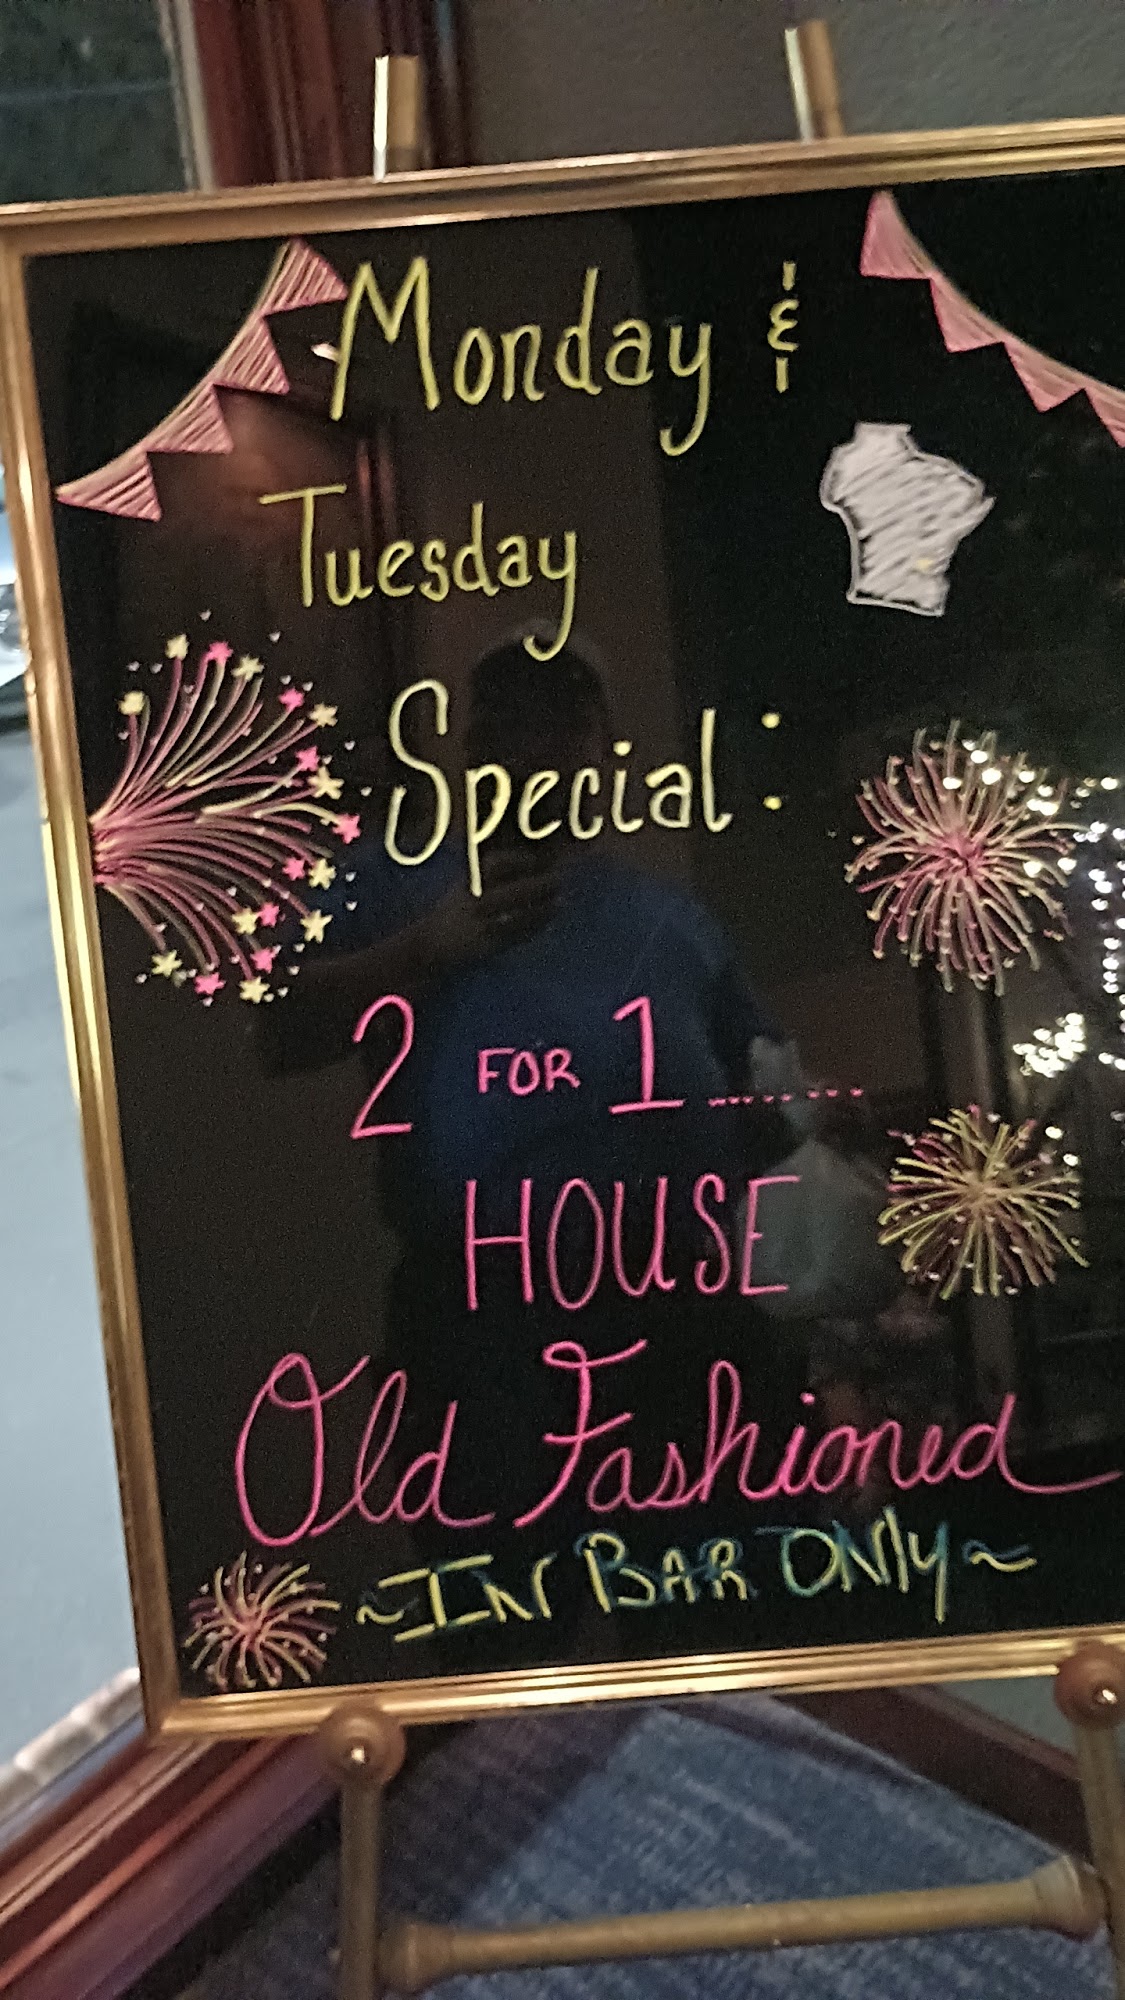 Monday &
Tuesday
Special:
2 FOR 1 .......
HOUSE
Old Fashioned
~IN BAR ONly~